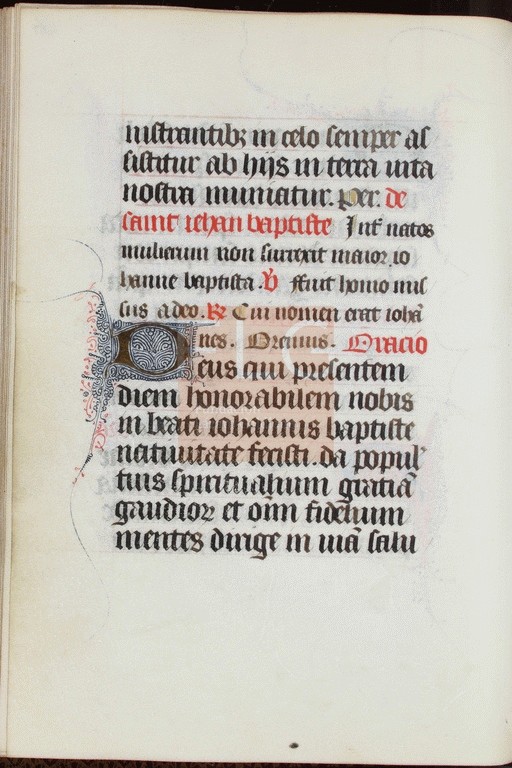 ınistrantibz in celo semper as
sistitur ab hijs in terra uita
nostra muniatur. Per. de
saint iehan baptiste Int̄ natos
mulierum non surrexit maior io
hanne baptista. V ffuit homo mis
sus a deo. R Cui nomen erat ioha
nes. Oremus. Oracio
Deus qui presentem
diem honorabilem nobis
in beati iohannis baptiste
natiuitate fecisti. da popul'
tuis spiritualium gratiā
gaudioꝝ et oīm fidelium
mentes dirige in uiā salu